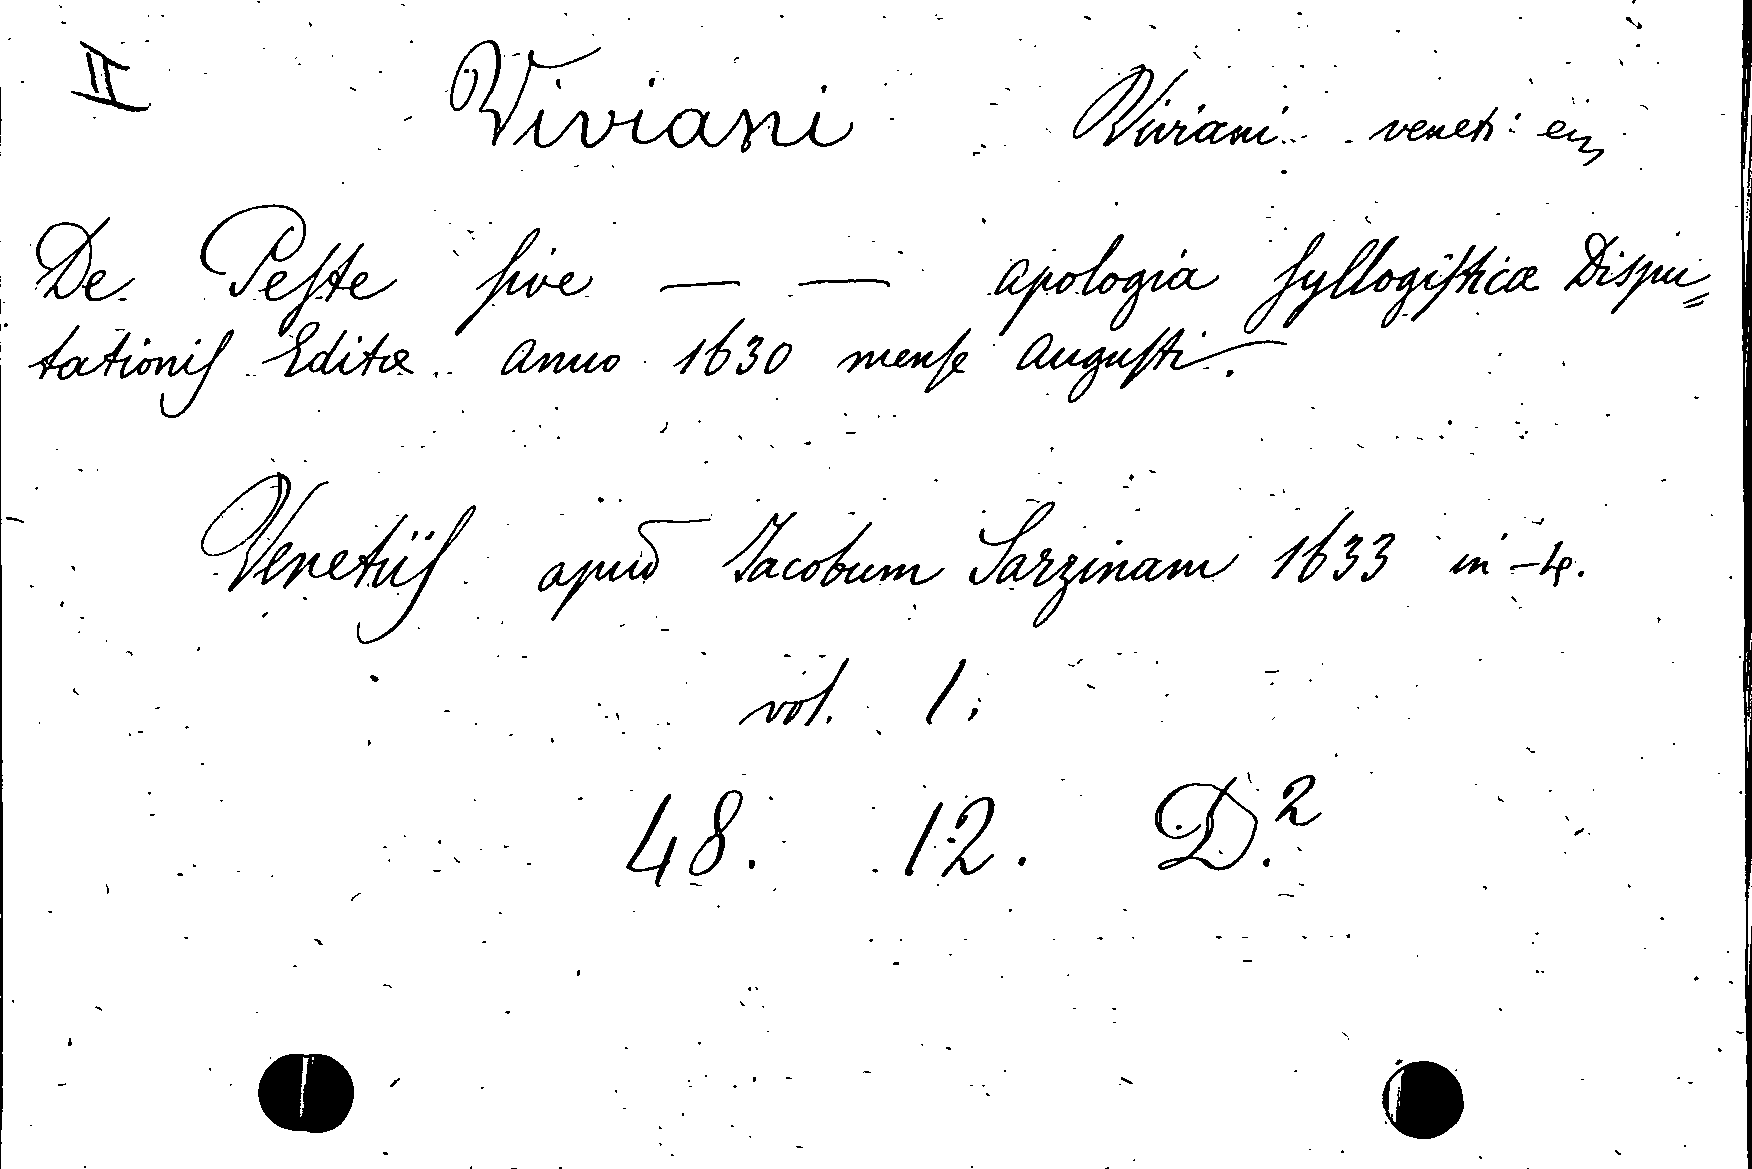 II Viviani Viviani veneti:
De Peſte ſive — — apologia ſyllogiſticæ Dispu=
tationiſ Editæ anno 1630 menſe Auguſti.
Venetiiſ apud Jacobum Sarzinam 1633 in -4°.
vol. 1.
48. 12. D.²